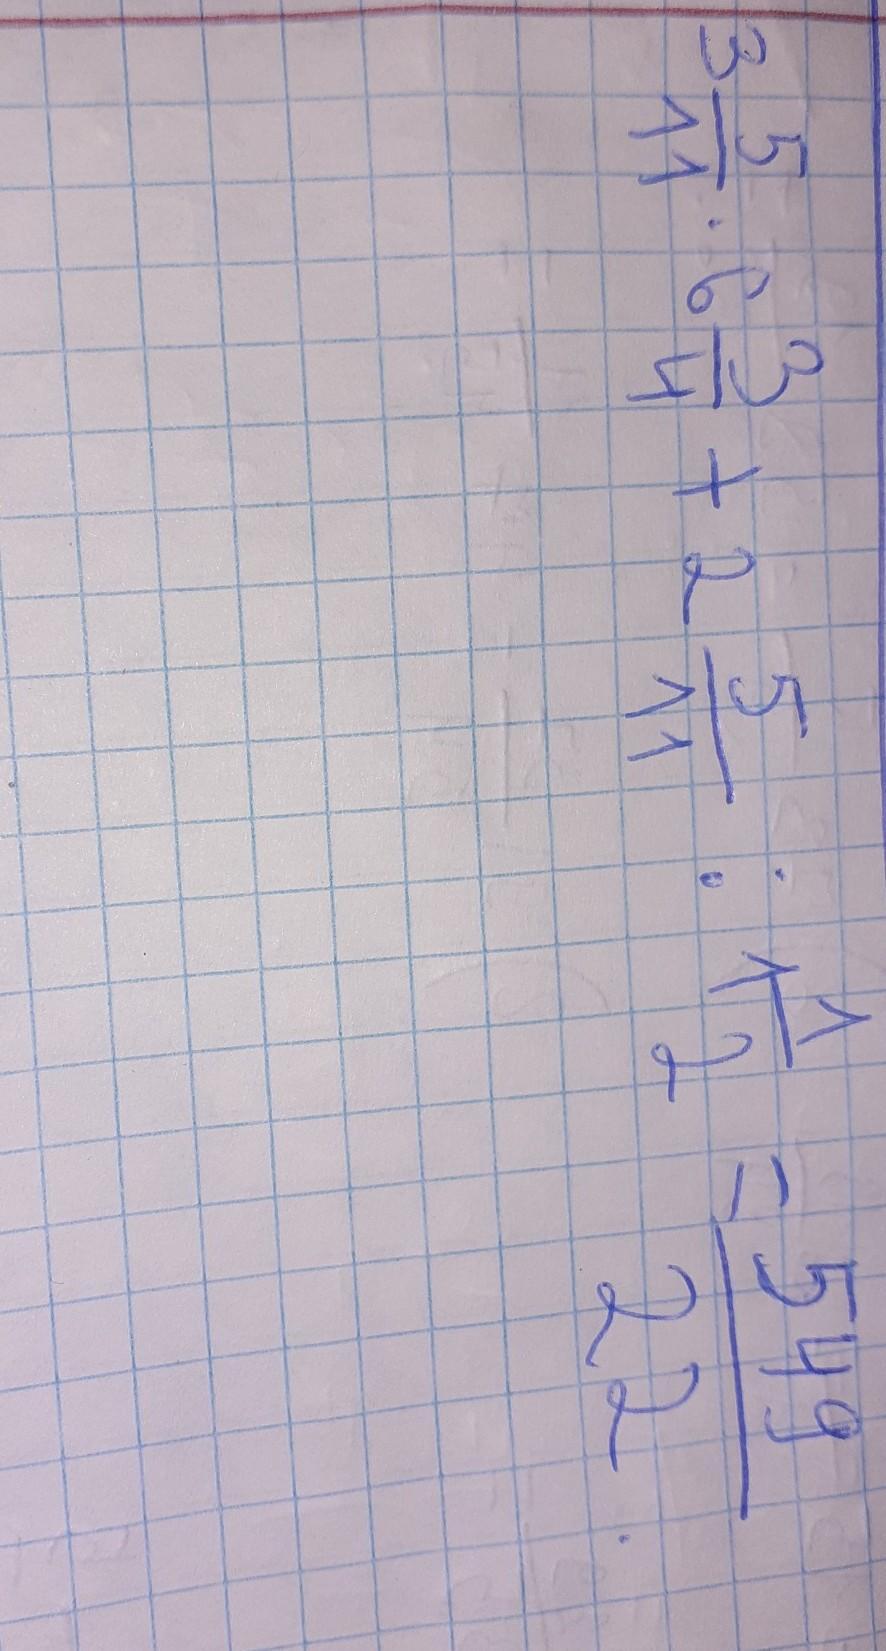 3 5/11 · 6 3/4 + 2 5/11 : 1 1/2 = 549/22.